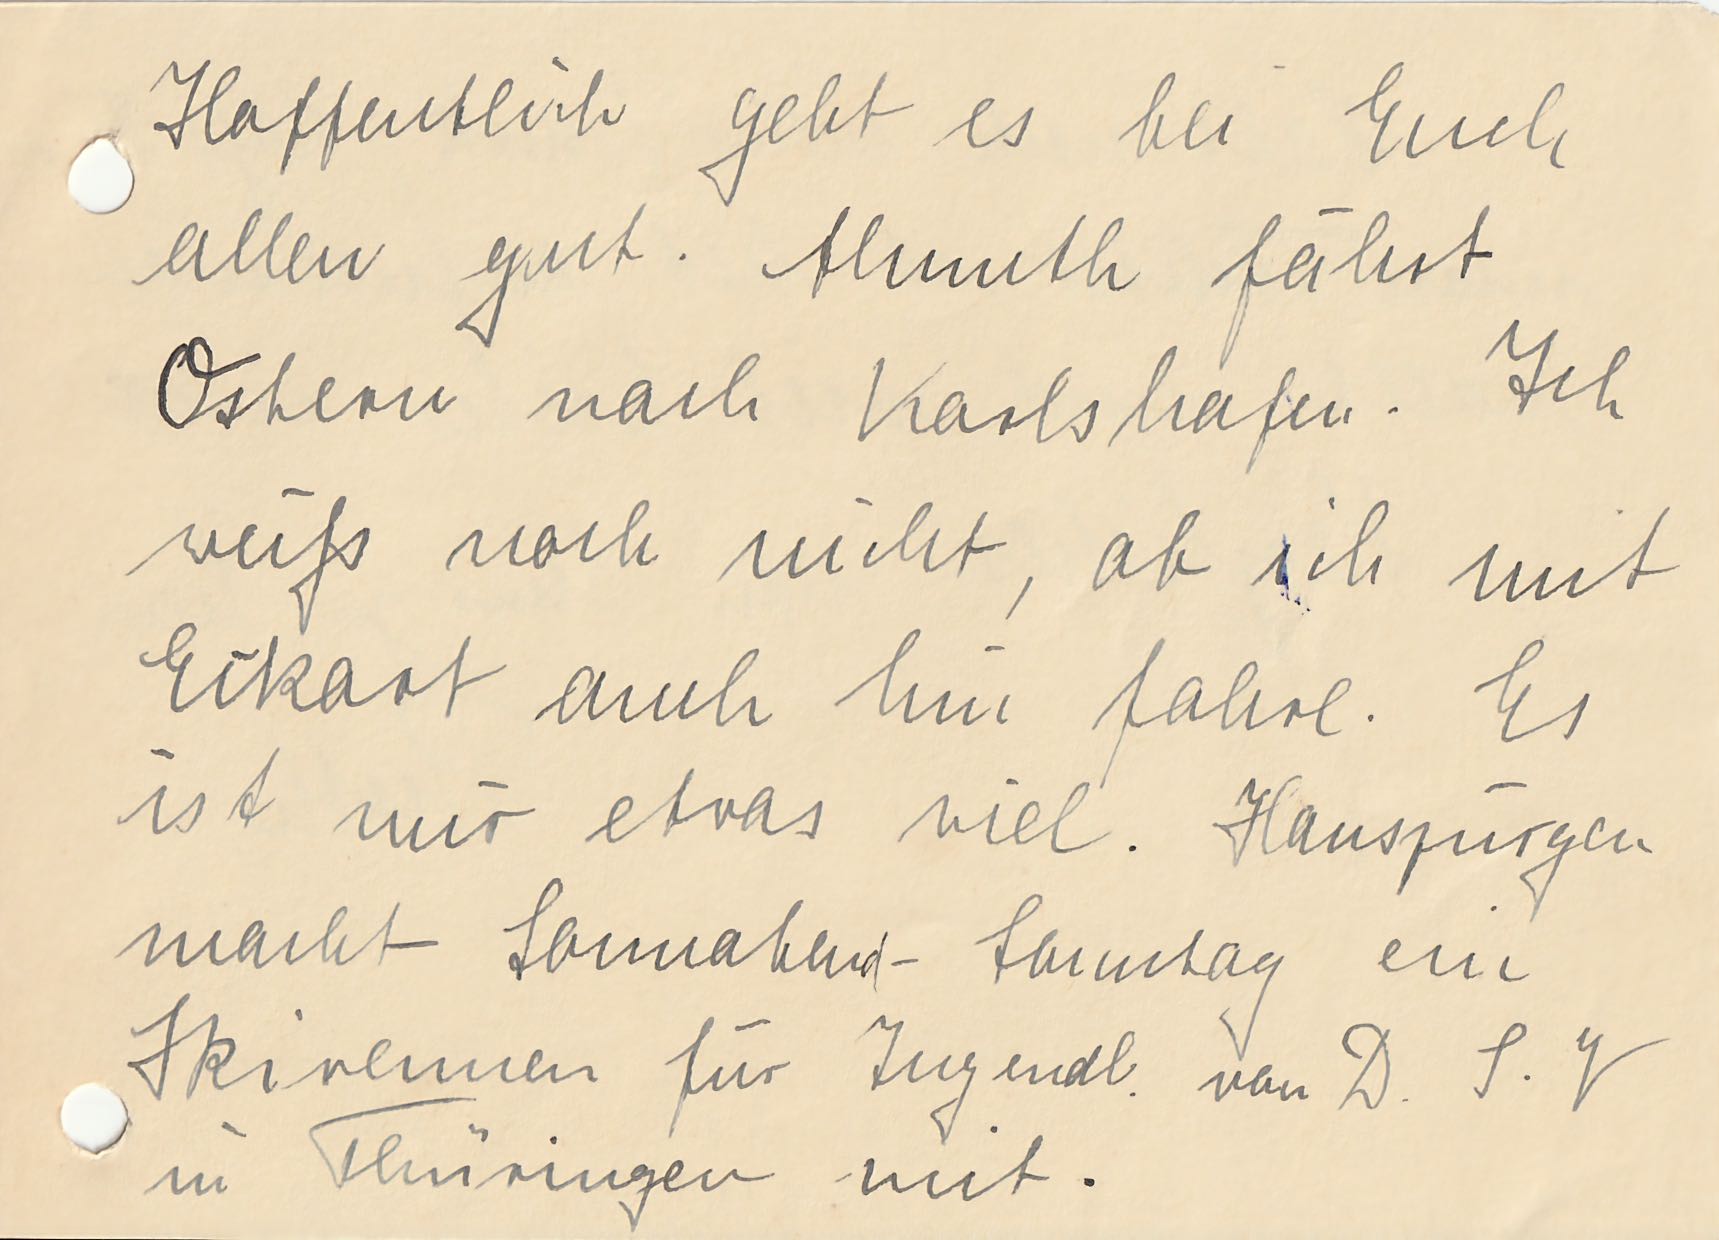 Hoffentlich geht es bei Euch
allen gut. Almuth fährt
Ostern nach Karlshafen. Ich
weiß noch nicht, ob ich mit
Eikart auch hin fahre. Es
ist mir etwas viel. Hansjürgen
macht Sonnabend- Sonntag ein
Skirennen für Jugendl. von D. S. V
in Thüringen mit.